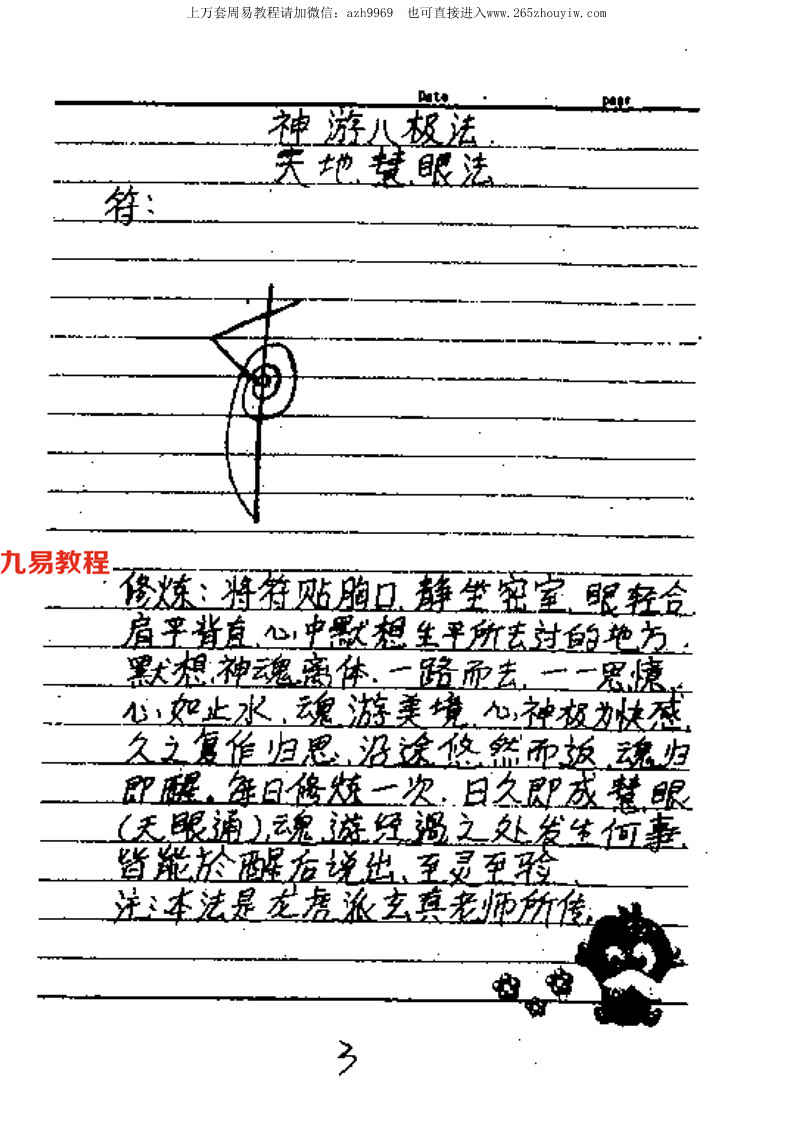 上万套周易教程请加微信：azh9969　也可直接进入www.265zhouyiw.com
Date
page
神游八极法.
天地慧眼法
符：
九易教程
修炼：将符贴胸口.静坐密室.眼轻合.
肩平背直.心中默想生平所去过的地方.
默想神魂离体.一路而去.一一思憶.
心如止水、魂游美境.心神极为快感.
久之复作归思、沿途悠然而返.魂归
即醒。每日修炼一次.日久即成慧眼
(天眼通)、魂游经過之处发生何事.
皆能於醒后说出、至灵至验.
注：本法是龙虎派玄真老师所传.
3